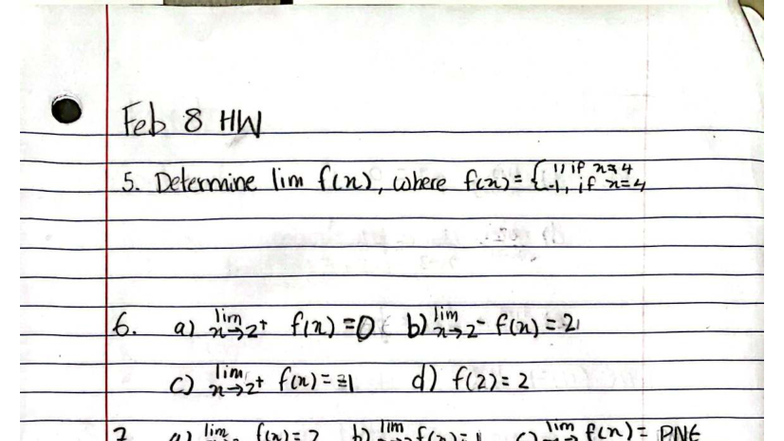 Feb 8 HW
5. Determine lim f(x), where f(x) = { 1, if x≠4
-1, if x=4
6. a) lim x→2+ f(x) = 0 b) lim x→2- f(x) = 2
c) lim x→2+ f(x) = -1 d) f(2) = 2
7 a) lim f(x) = 2 b) lim f(x) = 1 c) lim f(x) = DNE